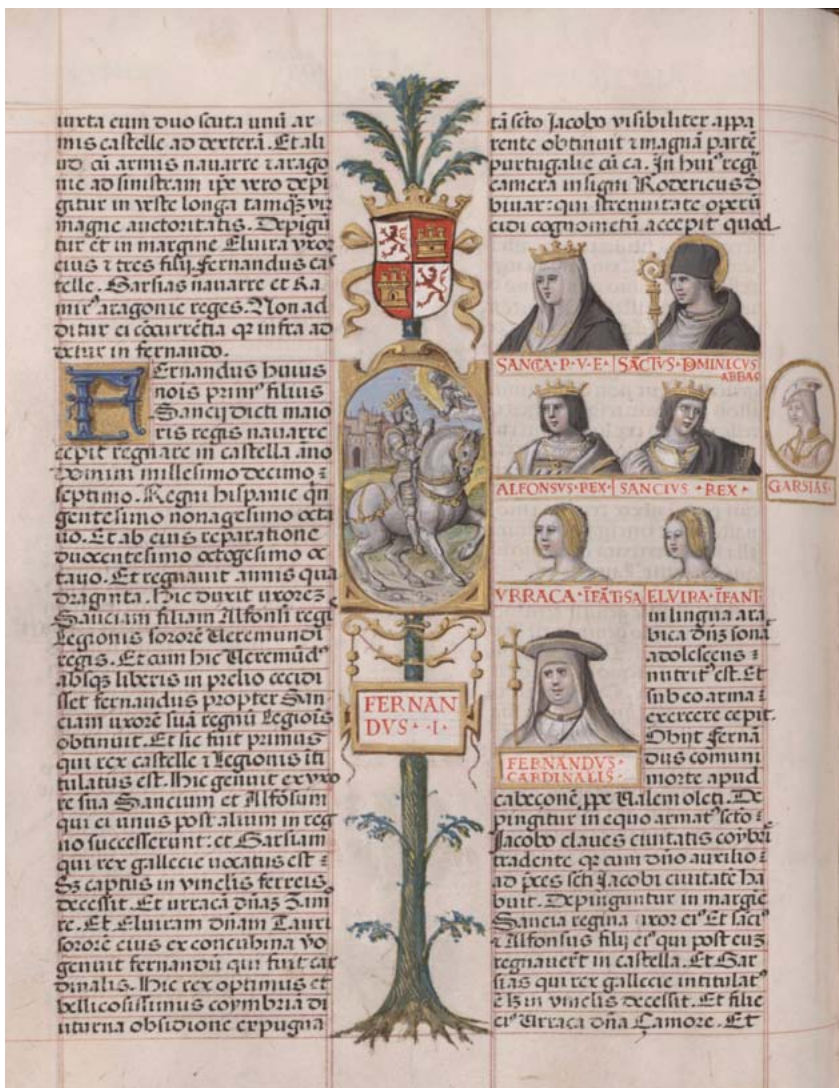 iuxta eum duo scuta unū ar
mis castelle ad dexterā. Et ali
ud cū armis nauarre ⁊ arago
nie ad sinistram ipe vero depi
gitur in veste longa tamqȝ vir
magne auctoritatis. Depigū
tur et in margine Eluira vxor
eius ⁊ tres filij. fernandus cas
telle. Garsias nauarre et Ra
mirꝰ aragonie reges. Non ad
ditur ei cōcurrētia qr infra ad
detur in fernando.
FErnandus huius
nois primꝰ filius
Sancij dicti maio
ris regis nauarre
cepit regnare in castella año
domini millesimo decimo ⁊
septimo. Regni hispanie qn
gentesimo nonagesimo octa
uo. Et ab eius reparatione
ducentesimo octogesimo oc
tauo. Et regnauit annis qua
draginta. Hic duxit vxorez
Sanciam filiam Alfonsi regꝭ
Legionis sororē Ueremundi
regis. Et cum hic Ueremūdꝰ
absqȝ liberis in prelio cecidi
sset fernandus propter San
ciam uxorē suā regnū Legiōis
obtinuit. Et sic fuit primus
qui rex castelle ⁊ Legionis īti
tulatus est. Hic genuit ex vxo
re sua Sancium et Alfōsum
qui ei unus post alium in reg
no successerunt: et Garsiam
qui rex gallecie uocatus est ⁊
Sȝ captus in vinclis ferreis
decessit. Et urracā dñaȝ Zam
re. Et Eluiram dñam Tauri
sororē eius ex concubina vo
genuit fernandū qui fuit car
dinalis. Hic rex optimus et
bellicosissimus coymbria di
uturna obsidione expugna
FERNAN
DVS · I ·
tā scto Jacobo visibiliter appa
rente obtinuit ⁊ magnā partē
purtugalie cū ea. In huiꝰ regꝭ
camera insigni Rodericus d
biuar: qui strenuitate operū
cidi cognometū accepit quod
SANCCA · P · V · E ·
SĀCTVS · DMINICVS
ABBAS
ALFONSVS · REX ·
SANCIVS · REX ·
GARSIAS
VRRACA · ĪFĀTISA
ELVIRA · ĪFANT
in lingua ara
bica dñȝ sonā
adolescens ⁊
nutritꝰ est. Et
sub eo arma ⁊
exercere cepit.
Obijt fernā
dus comuni
morte apud
FERNANDVS ·
CARDINALIS ·
cabeçonē ppe Ualem oleti. De
pingitur in equo armatꝰ scto ⁊
Jacobo claues ciuitatis coybrie
tradente qr cum dño auxilio ⁊
ad pces scti Jacobi ciuitatē ha
buit. Depinguntur in margie
Sancia regina uxor eiꝰ Et sāciꝰ
⁊ Alfonsus filij eiꝰ qui post euȝ
regnauert in castella. Et Gar
sias qui rex gallecie intitulatꝰ
ē lȝ in vinclis decessit. Et filie
eiꝰ Urraca dña Çamore. Et